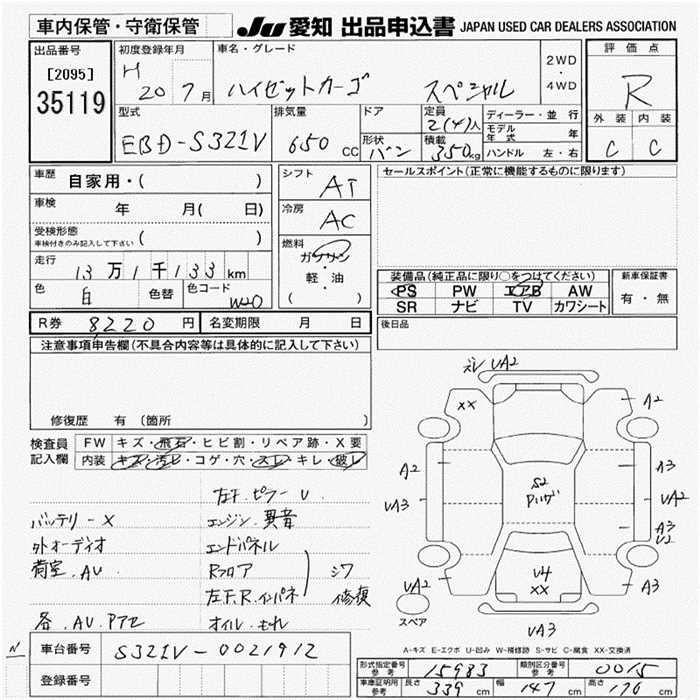 車内保管・守衛保管
JU 愛知 出品申込書 JAPAN USED CAR DEALERS ASSOCIATION
出品番号
[2095]
35119
初度登録年月
H 20 7月
車名・グレード
ハイゼットカーゴ スペシャル
2WD
・
4WD
評価点
R
外装 内装
C C
型式
EBD-S321V
排気量
650 CC
ドア
形状
バン
定員
2(4)人
積載
350kg
ディーラー・並行
モデル年式 年
ハンドル 左・右
車歴 自家用・( )
車検 年 月( 日)
受検形態
車検付きのみ記入して下さい ( )
走行
13万1千133km
色 白 色替 色コード W20
シフト AT
冷房 AC
燃料
ガソリン
・
軽・油
( )
セールスポイント(正常に機能するものに限ります)
装備品(純正品に限り○をつけてください)
PS PW エアB AW
SR ナビ TV カワシート
新車保証書
有・無
R券 8220円 名変期限 月 日
後日品
注意事項申告欄(不具合内容等は具体的に記入して下さい)
修復歴 有 (箇所
検査員記入欄
FW キズ・飛石・ヒビ割・リペア跡・X要
内装 キズ・汚レ・コゲ・穴・スレ・キレ・破レ
左F.ピラーU
バッテリー×
エンジン異音
外オーディオ
エンドパネル
荷室.AU
Rフロア
左F.R.インパネ
シワ
修復
各.AU.PTヱ
オイルもれ
ズレ VA2
XX
A2
A2
VA3
S2
A3
VA2
A3
U2
VA2
U4
XX
A3
スペア
VA3
A-キズ E-エクボ U-凹み W-補修跡 S-サビ C-腐食 XX-交換済
N
車台番号 S321V-0021912
登録番号
型式指定番号 参考 15983 類別区分番号 参考 0015
車庫証明用 参考 長さ 339cm 幅 147cm 高さ 176cm